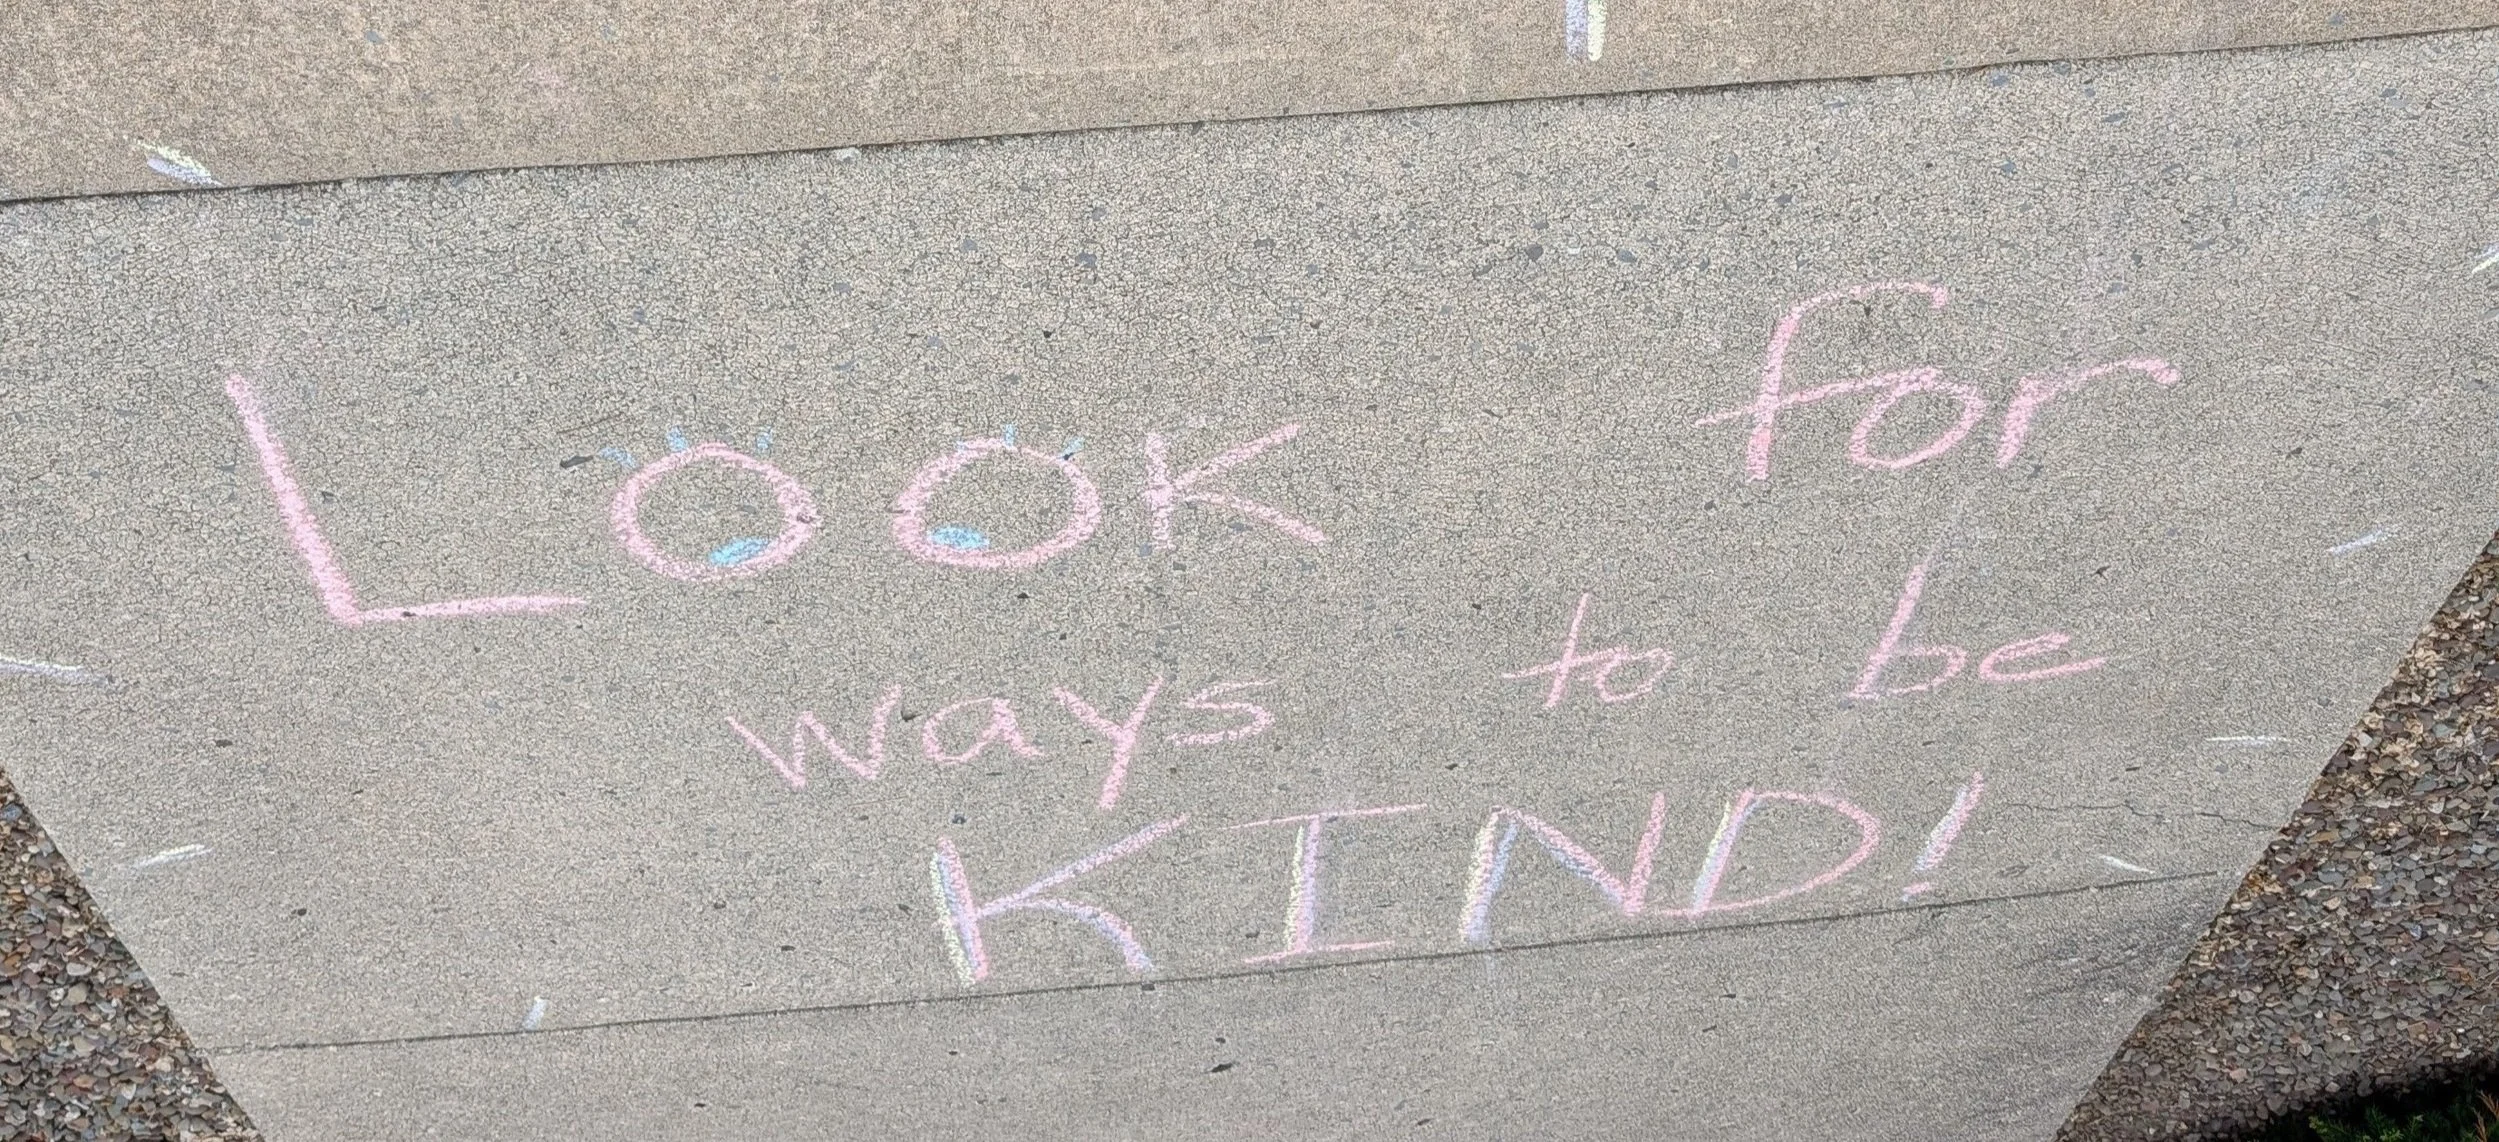 LOOK for
ways to be
KIND!